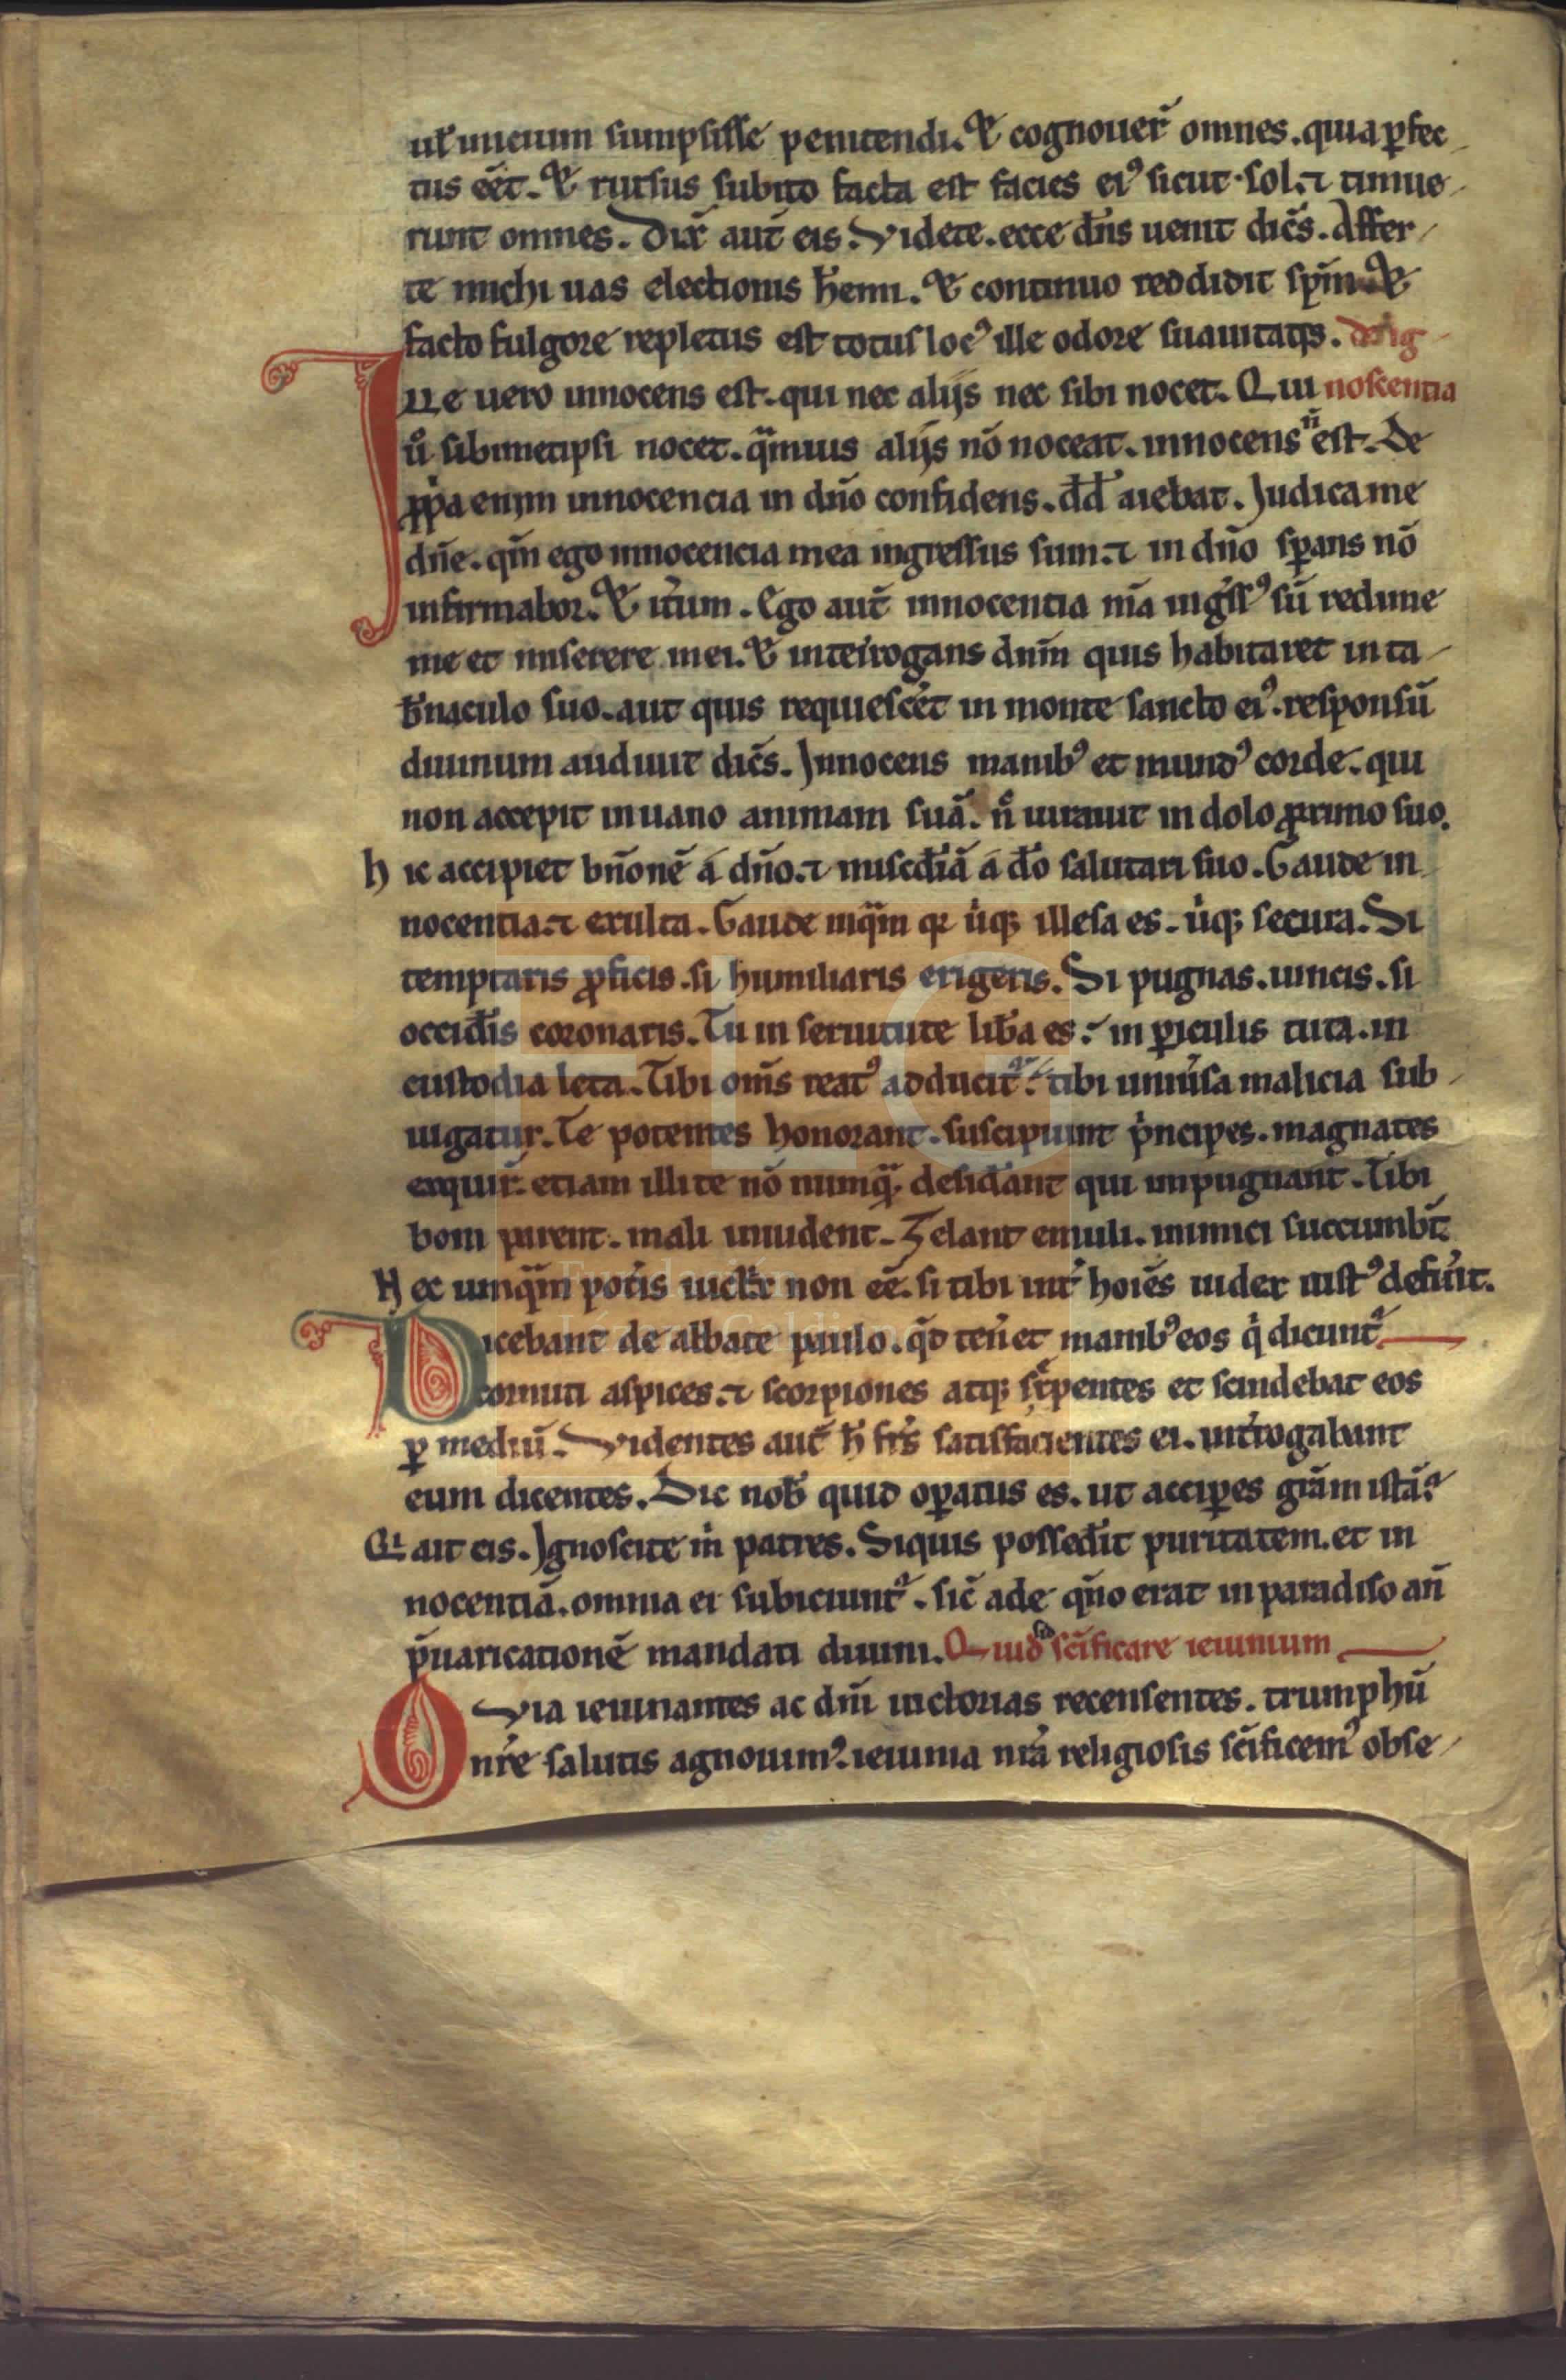 ul̃ inicium sumpsisse penitendi. & cognouer̃ omnes. quia ꝑfec
tus eẽt. & rursus subito facta est facies eiꝰ sicut sol. ⁊ timue
runt omnes. Dix̃ aut̃ eis. Videte. ecce dñs uenit dic̃s. Affer
te michi uas electionis h̃emi. & continuo reddidit sp̃m. &
facto fulgore repletus est totus locꝰ ille odore suauitaꝭ. de ig
Ille uero innocens est. qui nec alijs nec sibi nocet. Qui noscentia
ũ sibimetipsi nocet. q̃muis alijs nõ noceat. innocens ñ est. De
ꝓp̃a enim innocencia in dño confidens. dd̃ aiebat. Judica me
dñe. qm̃ ego innocencia mea ingressus sum. ⁊ in dño sꝑans nõ
infirmabor. & itũm. Ego aut̃ innocentia m̃a ingr̃ssꝰ sũ redime
me et miserere mei. & interrogans dnm̃ quis habitaret in ta
b̃naculo suo. aut quis requiescet̃ in monte sancto eiꝰ. responsũ
diuinum audiuit dic̃s. Innocens manibꝰ et mundꝰ corde. qui
non accepit in uano animam suã. ñ iurauit in dolo ꝓximo suo.
hic accipiet bñonẽ a dño. ⁊ misc̃diã a do̅ salutari suo. Gaude in
nocentia. ⁊ exulta. Gaude inq̃m qr̃ ub̃iqꝫ illesa es. ub̃iqꝫ secura. Si
temptaris ꝓficis. si humiliaris erigeris. Si pugnas. uincis. si
occid̃is coronaris. Tu in seruitute lib̃a es. in ꝑiculis tuta. in
custodia leta. Tibi om̃s reatꝰ adducit̃. tibi uniu̾sa malicia sub
iugatur. Te potentes honorant. suscipiunt p̃ncipes. magnates
exquir̃. etiam illi te nõ numq̃. desid̃ant qui inpugnant. Tibi
boni parent. mali inuident. Zelant emuli. inimici succumbt̃.
Nec umq̃m pot̃is uict̃x non eẽ. si tibi int̃ hoiẽs iudex iustꝰ defũit.
Dicebant de abbate paulo. q̃d ten̾et manibꝰ eos q̃ dicunt̃
cornuti aspices. ⁊ scorpiones atqꝫ s̃pentes et scindebat eos
ꝑ mediũ. Videntes aut̃ h̃ fr̃s satisfacientes ei. int̃rogabant
eum dicentes. Dic nob̃ quid oꝑatus es. ut acciꝑes gr̃am istã.
Qi ait eis. Ignoscite m̃ patres. Siquis possed̃it puritatem. et in
nocentiã. omnia ei subiciunt̃. sic̃ ade qño erat in paradiso añ
p̃uaricationẽ mandati diuini. Quid sit sc̃ificare ieiunium
Quia ieiunantes ac dñi uictorias recensentes. triumphũ
nr̃e salutis agnouimꝰ. ieiunia nr̃a religiosis sc̃ificemꝰ obse